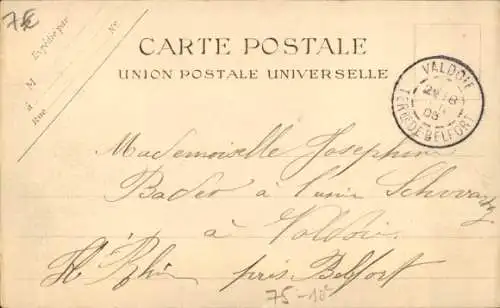 7€
Expédié par
M
à
Rue
N°
CARTE POSTALE
UNION POSTALE UNIVERSELLE
VALDOIE
TERRRE DE BELFORT
Mademoiselle Josephine
Bader à l'usin Schwartz
à Valdoie
Ht Rhin près Belfort
75-10€